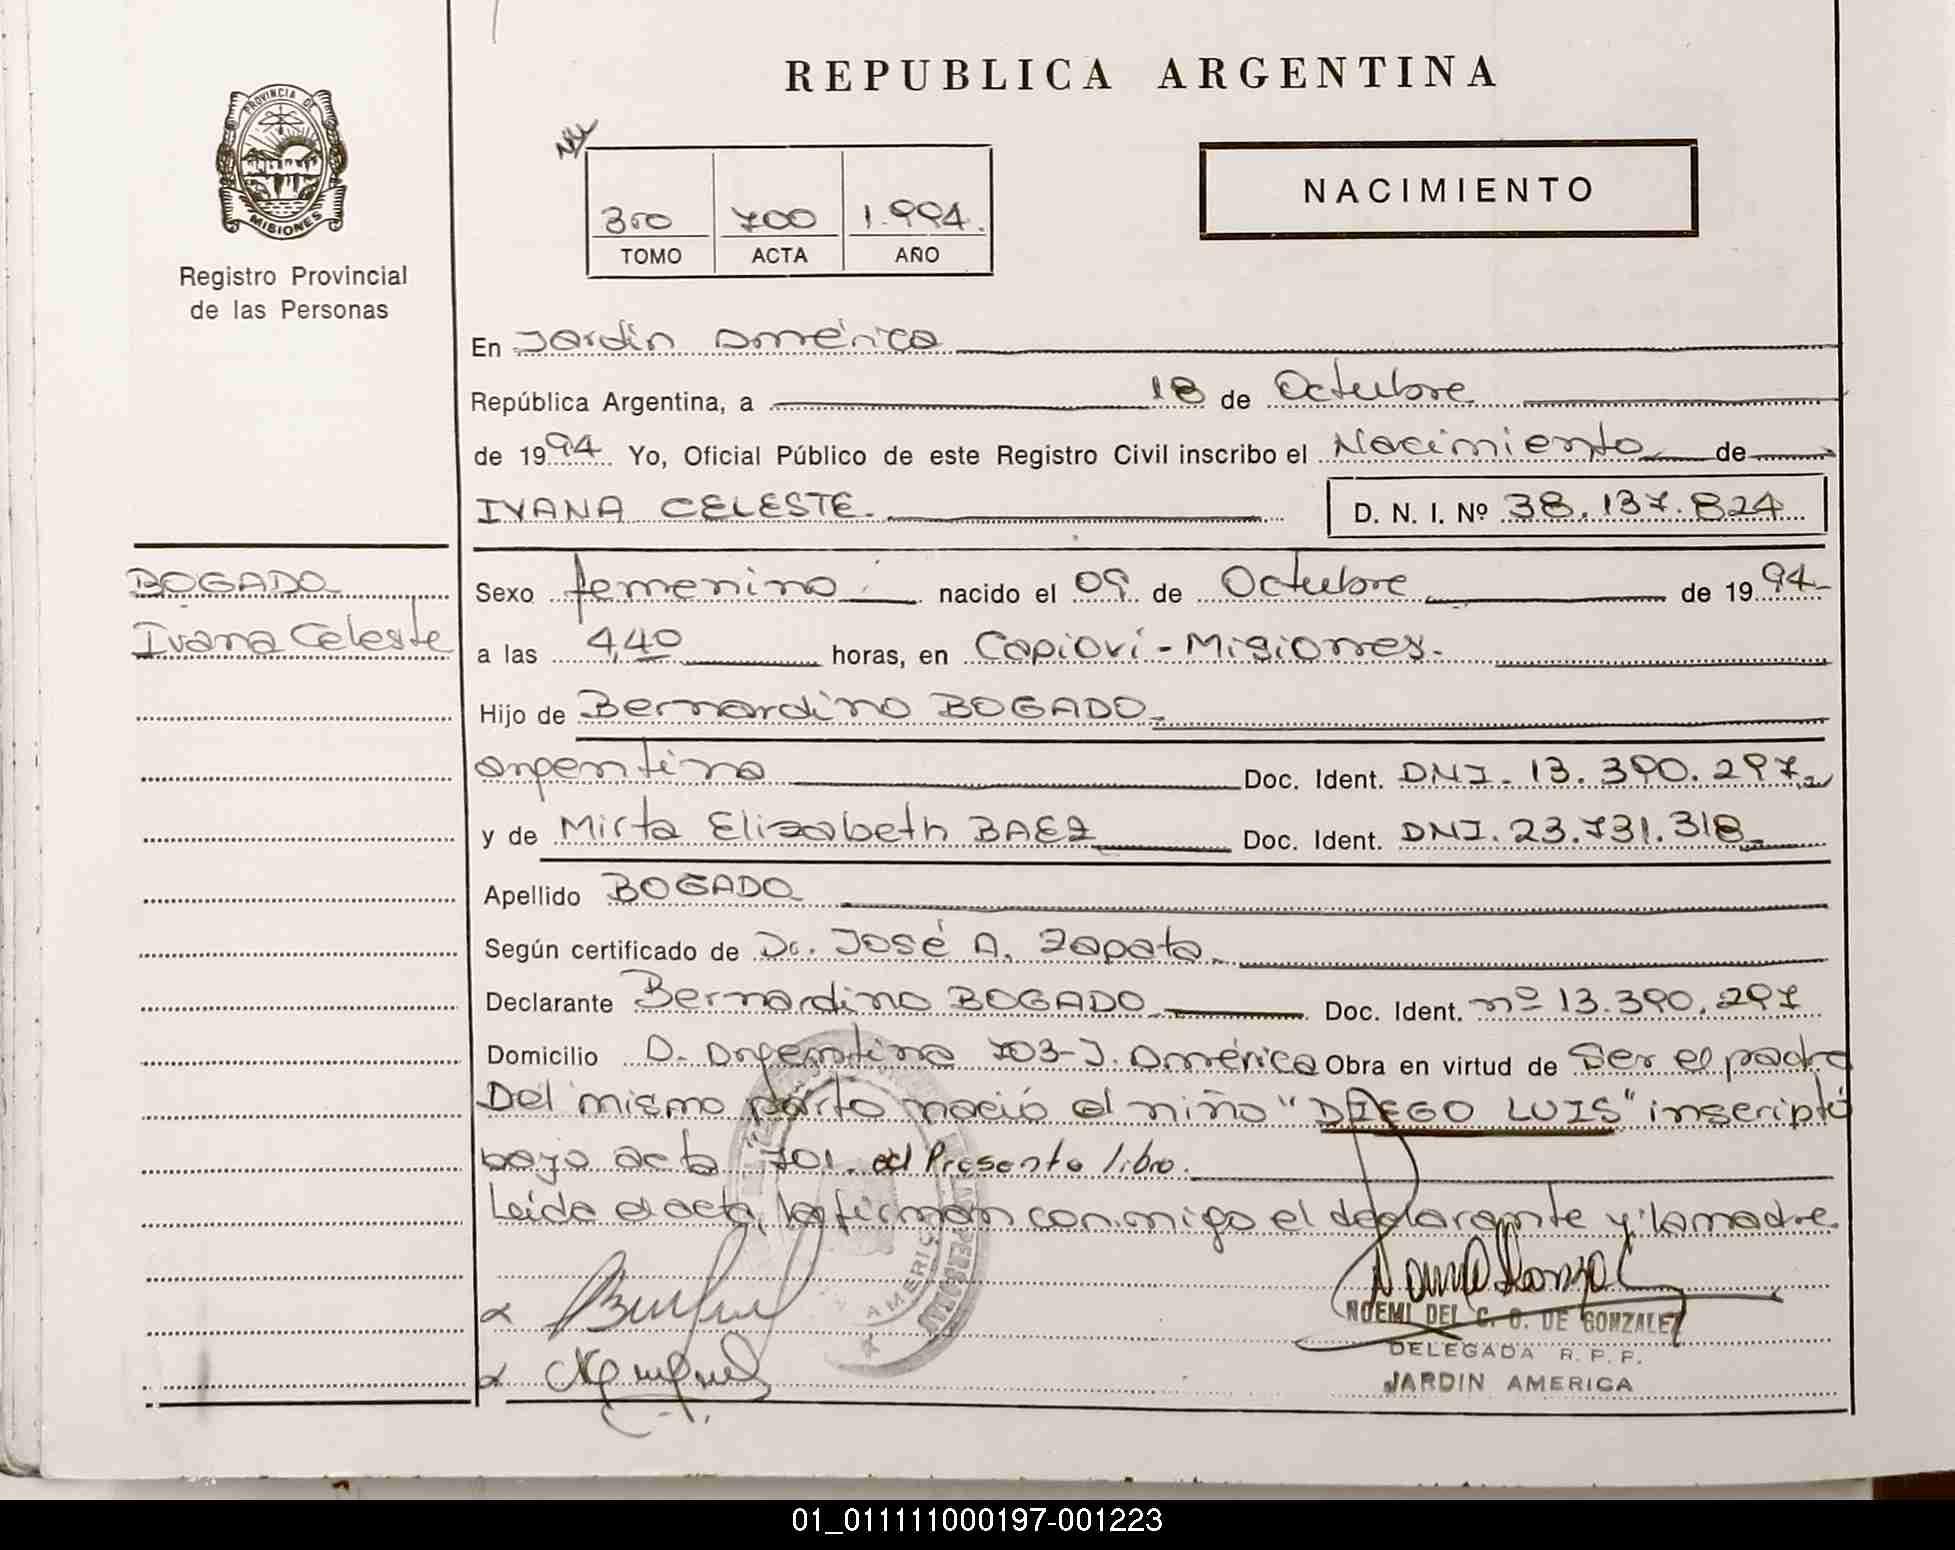 REPUBLICA ARGENTINA
PROVINCIA DE
MISIONES
Registro Provincial
de las Personas
300 700 1.994.
TOMO ACTA AÑO
NACIMIENTO
En Jardín América
República Argentina, a 18 de Octubre
de 1994 Yo, Oficial Público de este Registro Civil inscribo el Nacimiento de
IVANA CELESTE. D. N. I. Nº 38.137.824
BOGADO
Ivana Celeste
Sexo femenino nacido el 09 de Octubre de 1994
a las 4,40 horas, en Capioví - Misiones.
Hijo de Bernardino BOGADO
argentino Doc. Ident. DNI. 13.390.297
y de Mirta Elizabeth BAEZ Doc. Ident. DNI. 23.731.318
Apellido BOGADO
Según certificado de Dr. José A. Zapata
Declarante Bernardino BOGADO Doc. Ident. nº 13.390.297
Domicilio D. Argentina 703 - J. América Obra en virtud de Ser el padre
Del mismo parto nació el niño "DIEGO LUIS" inscripto
bajo acta 701. del Presente libro.
Leída el acta, la firman conmigo el declarante y la madre.
AMERICA
NOEMI DEL C. O. DE GONZALEZ
DELEGADA R. P. P.
JARDIN AMERICA
01_011111000197-001223